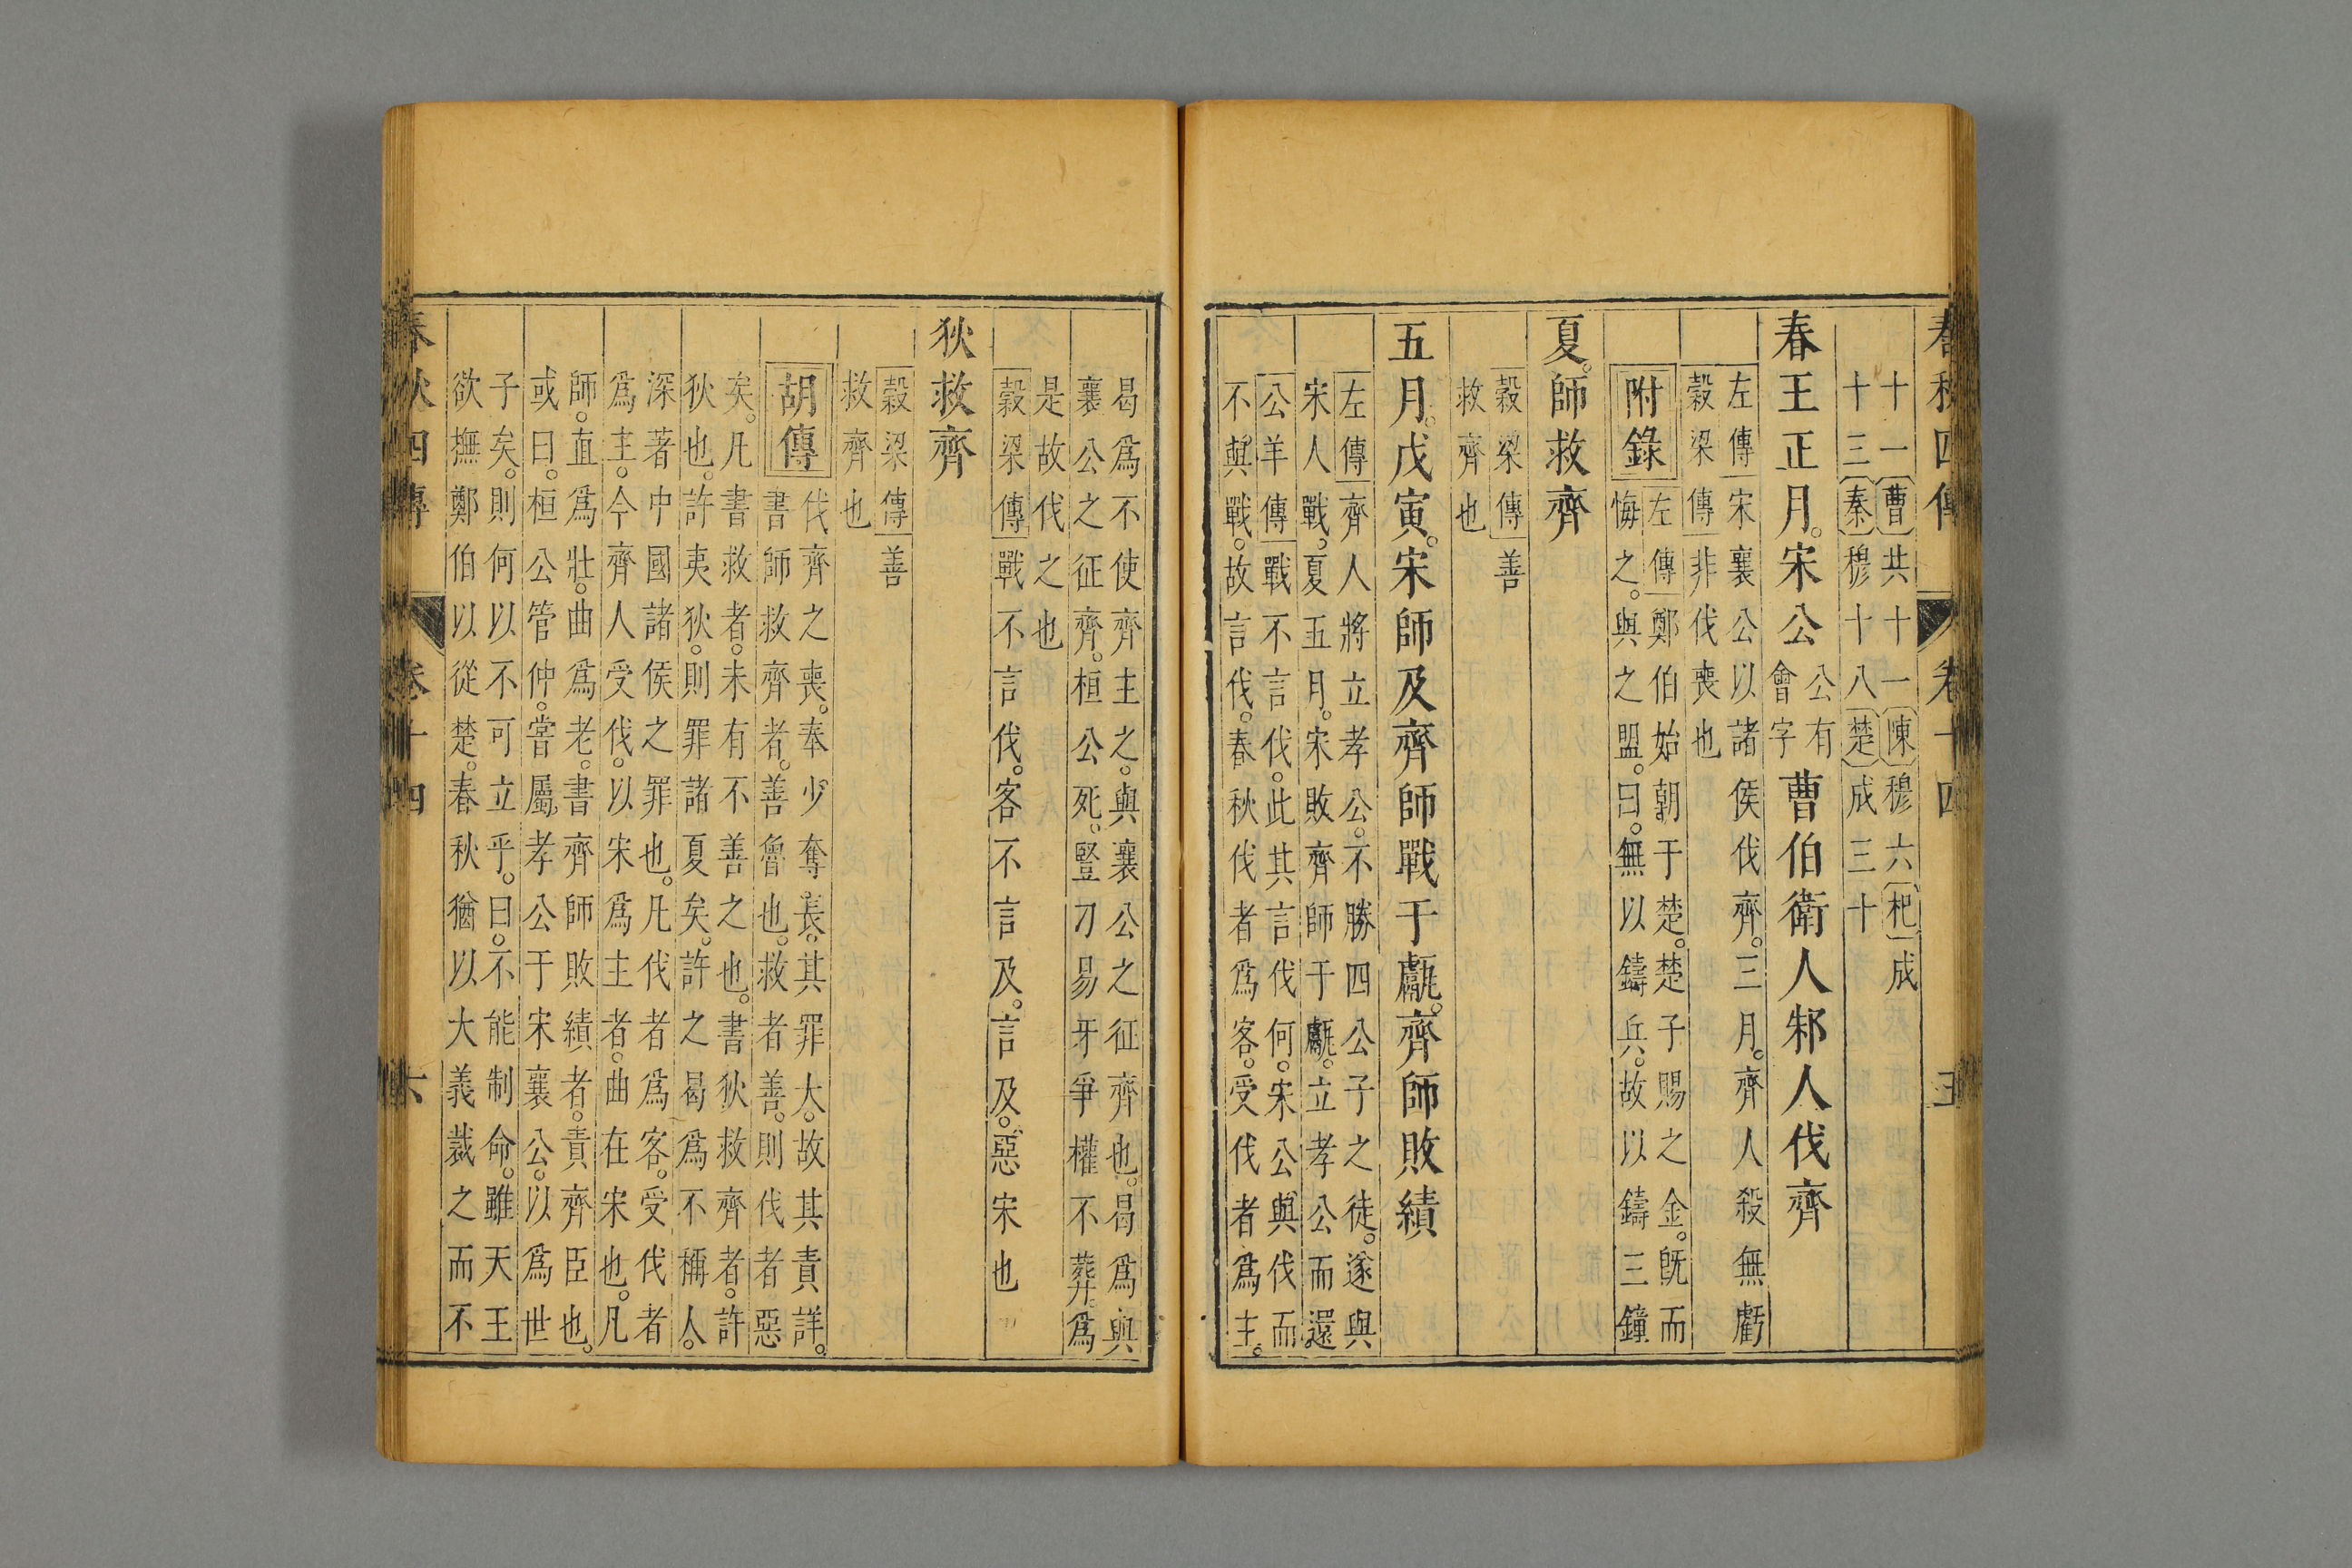 春秋四傳 卷十四 五
十一曹共十一陳穆六杞成
十三秦穆十八楚成三十
春王正月。宋公公有會字曹伯衛人邾人伐齊
左傳宋襄公以諸侯伐齊。三月。齊人殺無虧
穀梁傳非伐喪也
附錄左傳鄭伯始朝于楚。楚子賜之金。旣而
悔之。與之盟。曰。無以鑄兵。故以鑄三鐘
夏。師救齊
穀梁傳善
救齊也
五月。戊寅。宋師及齊師戰于甗。齊師敗績
左傳齊人將立孝公。不勝四公子之徒。遂與
宋人戰。夏五月。宋敗齊師于甗。立孝公而還
公羊傳戰不言伐。此其言伐何。宋公與伐而
不與戰。故言伐。春秋伐者爲客。受伐者爲主。
曷爲不使齊主之。與襄公之征齊也。曷爲與
襄公之征齊。桓公死。豎刁易牙爭權不葬。爲
是故伐之也
穀梁傳戰不言伐。客不言及。言及。惡宋也
狄救齊
穀梁傳善
救齊也
胡傳伐齊之喪。奉少奪長。其罪大。故其責詳。
書師救齊者。善魯也。救者善。則伐者惡
矣。凡書救者。未有不善之也。書狄救齊者。許
狄也。許夷狄。則罪諸夏矣。許之曷爲不稱人。
深著中國諸侯之罪也。凡伐者爲客。受伐者
爲主。今齊人受伐。以宋爲主者。曲在宋也。凡
師。直爲壯。曲爲老。書齊師敗績者。責齊臣也。
或曰。桓公管仲。嘗屬孝公于宋襄公。以爲世
子矣。則何以不可立乎。曰。不能制命。雖天王
欲撫鄭伯以從楚。春秋猶以大義裁之而不
春秋四傳 卷十四 六